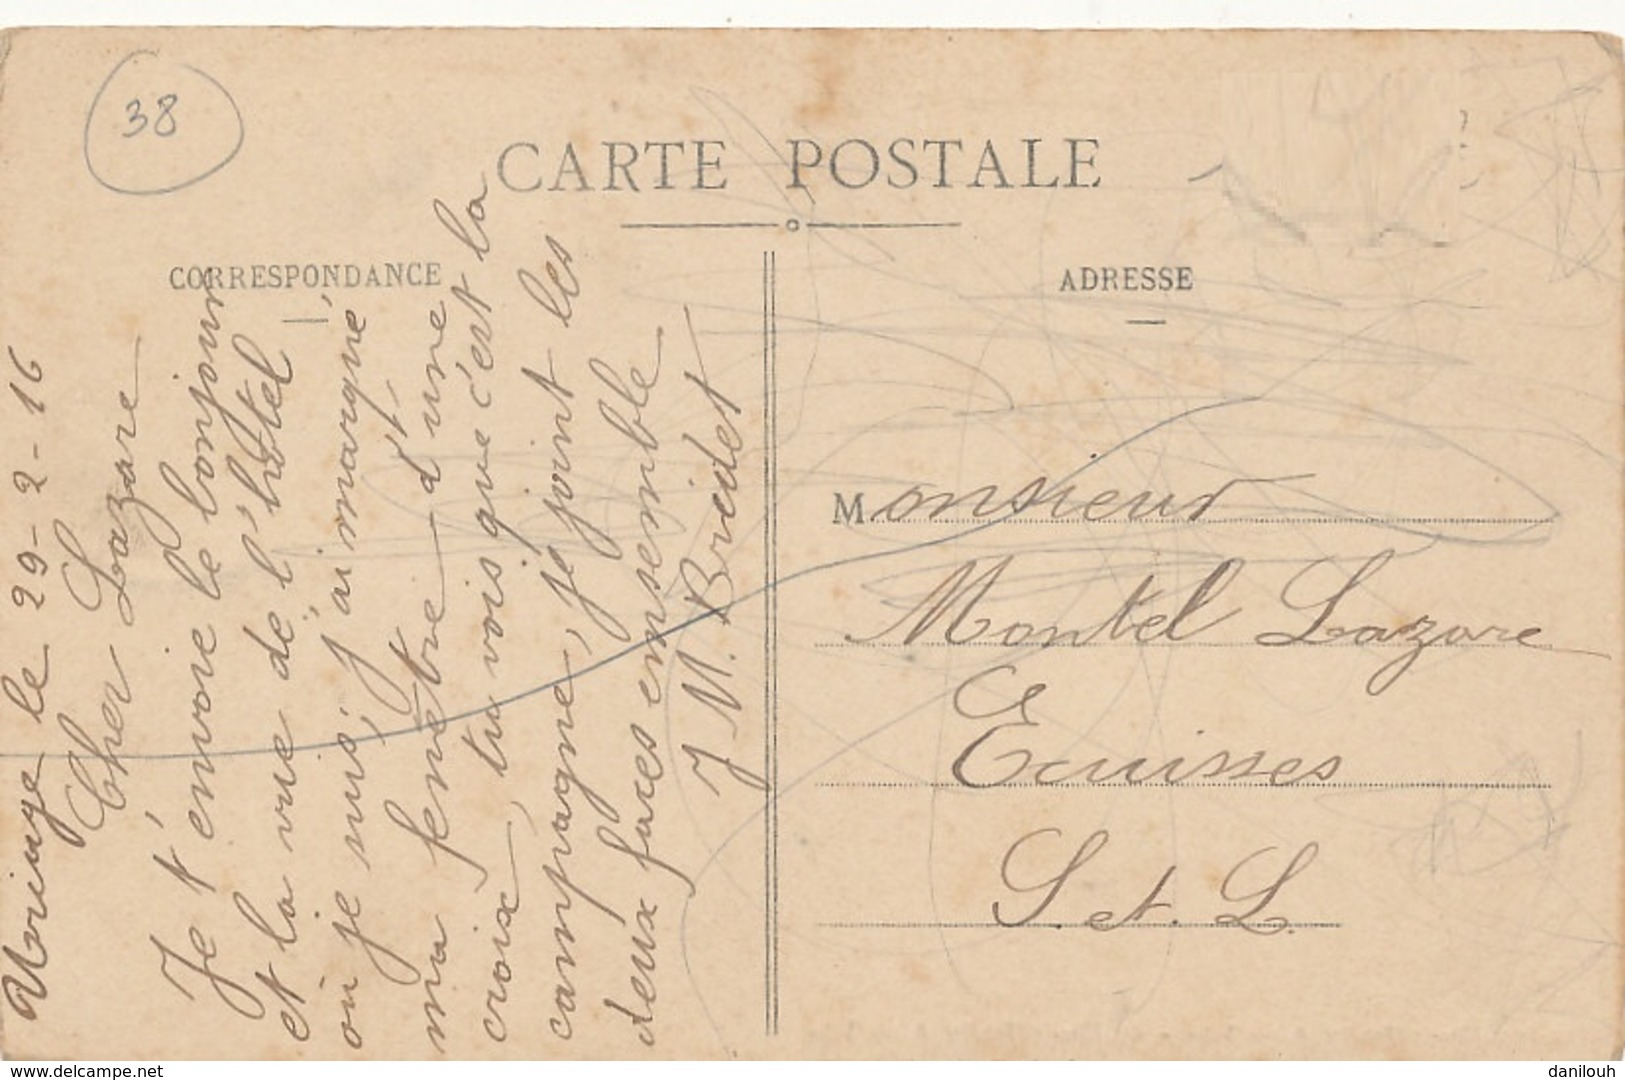 38
CARTE POSTALE
CORRESPONDANCE
Uriage le 29-2-16
Cher Lazare
Je t'envoie le bonjour
et la vue de l'hôtel
où je suis, j'ai marqué
ma fenêtre d'une
croix, tu vois que c'est la
campagne, je joint les
deux faces ensemble
J M. Bridet
ADRESSE
Monsieur
Montel Lazare
Ecuisses
S. et. L.
www.delcampe.net
danilouh